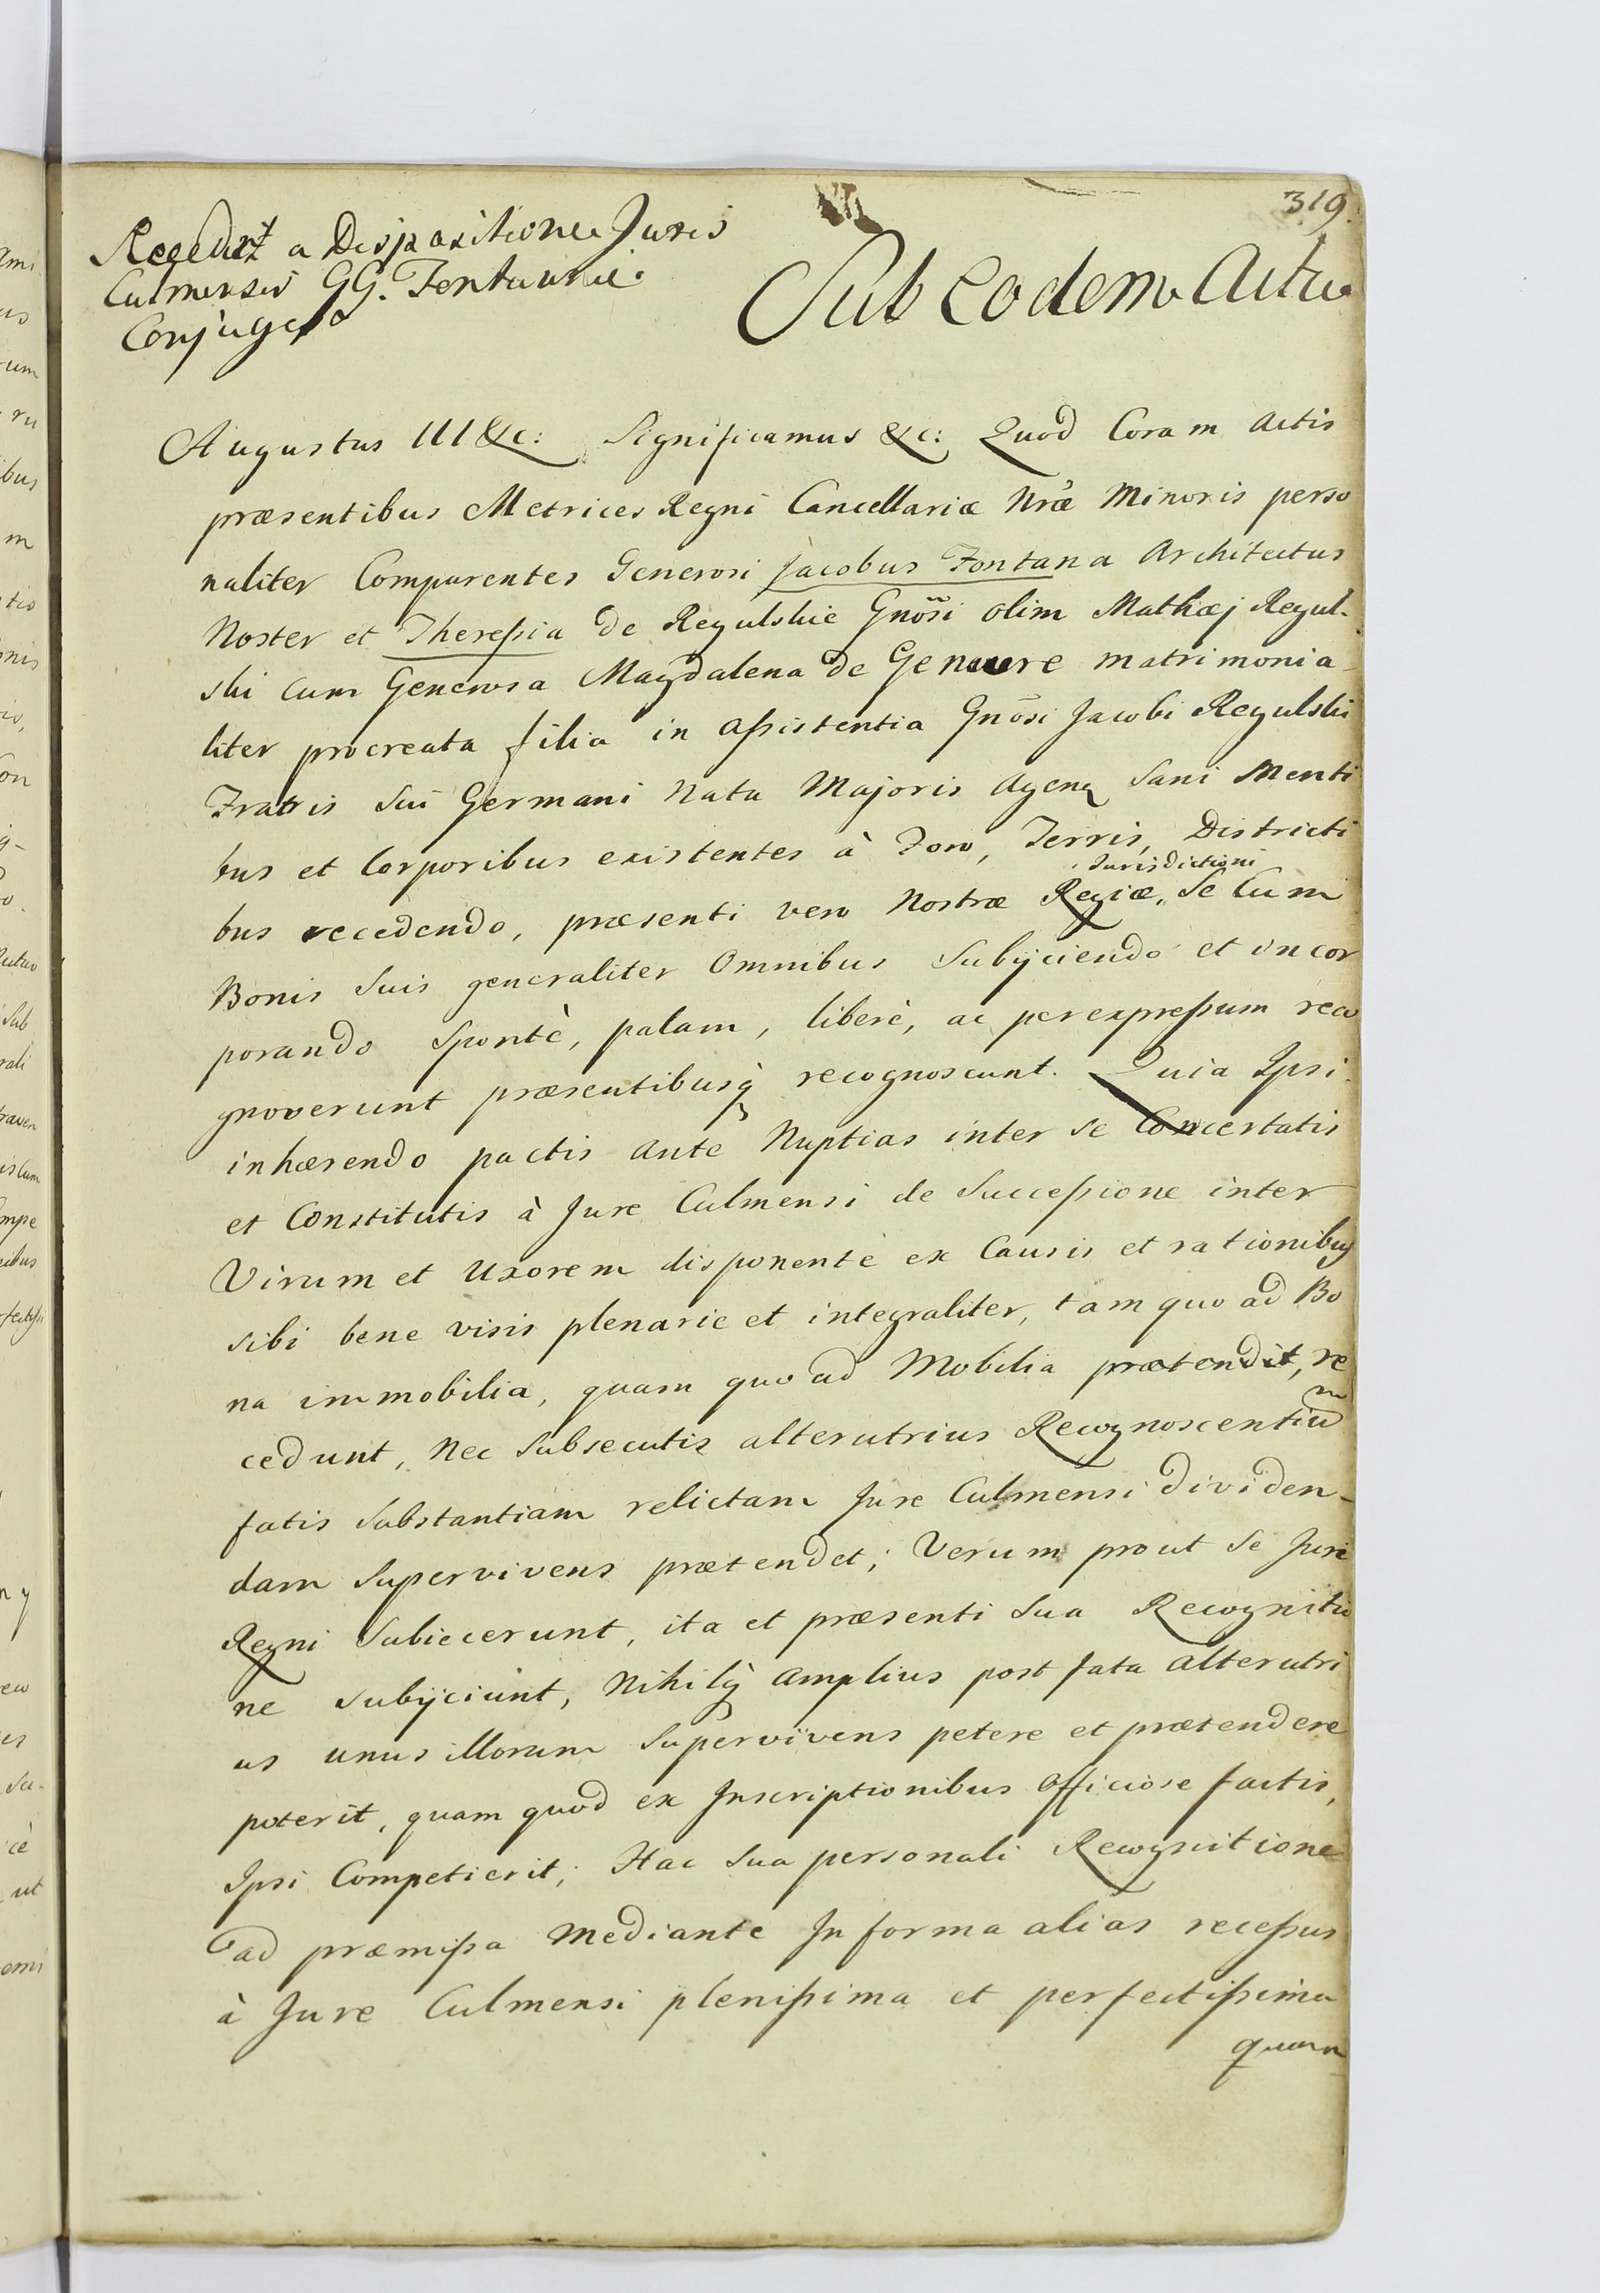 319.
Recedunt a Dispositione Juris
Culmensis GG. Fontanne
Conjuges
Sub eodem Actu
Augustus III &c: Significamus &c: Quod Coram Actis
præsentibus Metrices Regni Cancellariæ Nræ Minoris perso
naliter Comparentes Generosi Jacobus Fontana Architectus
Noster et Theresia de Regulskie Gnosi olim Mathæj Regul-
ski cum Generosa Magdalena de Genuere matrimonia
liter procreata filia in assistentia Gnosi Jacobi Regulski
Fratris sui Germani Nata Majoris agens Sani Menti
bus et Corporibus existentes à Foro, Terris, Districti
bus recedendo, præsenti vero Nostræ Regiæ, Se Cum
Jurisdictioni
Bonis Suis generaliter Omnibus Subijciendo et incor
porando Spontè, palam, liberè, ac per expressum reco
gnoverunt præsentibusq recognoscunt. Quia Ipsi
inhærendo pactis ante Nuptias inter se Concertatis
et Constitutis à Jure Culmensi de Successione inter
Virum et Uxorem disponente ex Causis et rationibus
sibi bene visis plenarie et integraliter, tam quo ad Bo
na immobilia, quam quo ad Mobilia prætendit, re
cedunt, Nec Subsecutis alterutrius Recognoscentium
fatis Substantiam relictam Jure Culmensi dividen-
dam Supervivens prætendet; Verum prout se Juri
Regni Subiecerunt, ita et præsenti Sua Recognitio
ne subijciunt, Nihilq amplius post fata alterutri
us unus illorum Supervivens petere et prætendere
poterit, quam quod ex Inscriptionibus officiose factis,
Ipsi Competierit; Hac Sua personali Recognitione
ad præmissa Mediante In forma alias recessus
à Jure Culmensi plenissima et perfectissima
quam